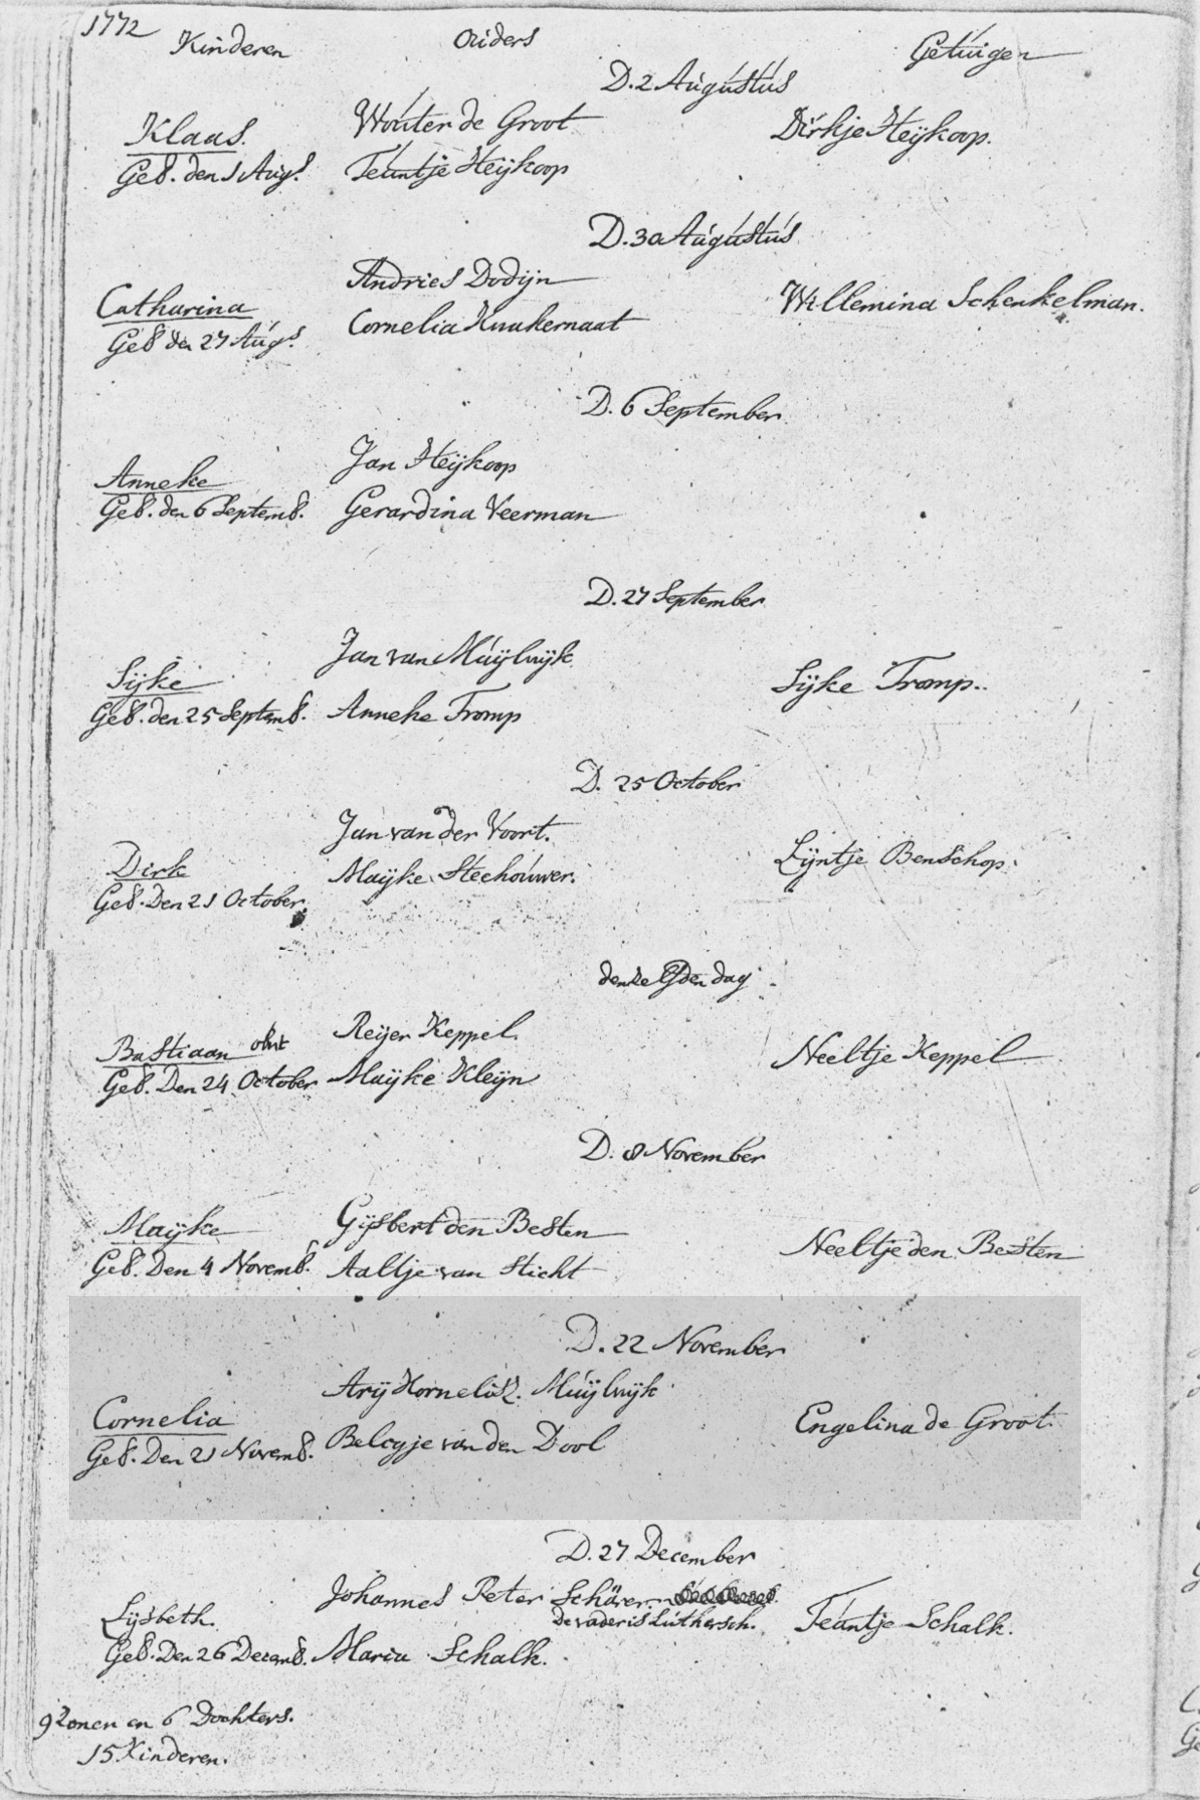 1772
Kinderen Ouders Getuigen
D. 2 Augustus
Klaas. Wouter de Groot Dirkje Heijkoop.
Geb. den 1 Augs. Teuntje Heijkoop
D. 30 Augustus
Andries Dodijn
Catharina Cornelia Kuukernaat Willemina Schenkelman.
Geb den 27 Augs.
D. 6 September
Jan Heijkoop
Anneke
Geb. den 6 Septemb. Gerardina Veerman
D. 27 September
Jan van Muijlwijk
Sijke Sijke Tromp..
Geb. den 25 Septemb. Anneke Tromp
D. 25 October
Jan van der Voort.
Dirk Maijke Steehouwer. Lijntje Benschop.
Geb. Den 21 October.
denzelfden dag
Reijer Keppel.
Bastiaan obiit Neeltje Keppel
Geb. Den 24 October Maijke Kleijn
D. 8 November
Maijke Gijsbert den Besten Neeltje den Besten
Geb. Den 4 Novemb. Aaltje van Sticht
D. 22 November
Arij Kornelisz. Muijlwijk
Cornelia Engelina de Groot.
Geb. Den 21 Novemb. Belegje van den Dool
D. 27 December
Johannes Peter Schärer
Lijsbeth. de vader is Luthersch. Teuntje Schalk.
Geb. Den 26 Decemb. Maria Schalk.
9 Zonen en 6 Dochters.
15 Kinderen.